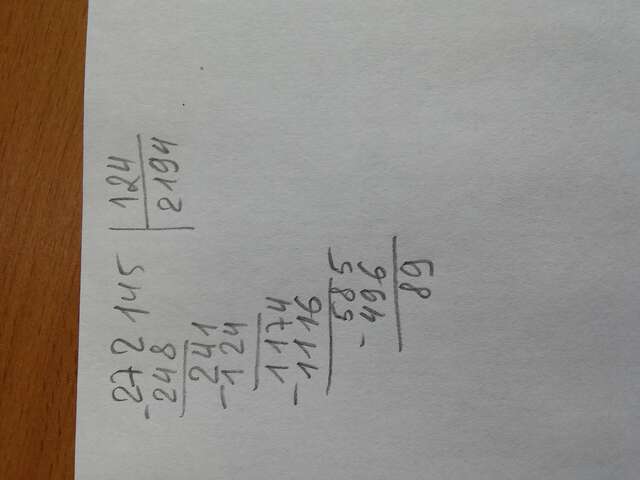 - 272145 | 124
248 | 2194
- 241
124
- 1174
1116
- 585
496
89